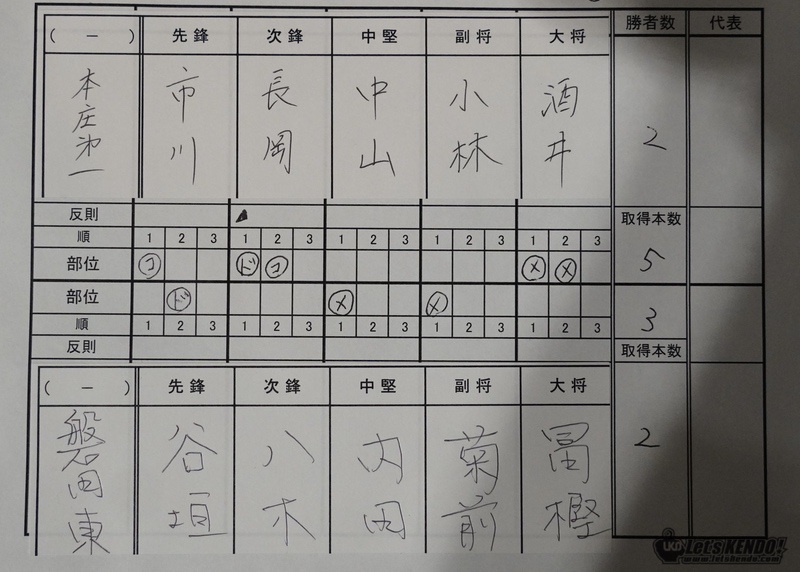 ( － ) 先鋒 次鋒 中堅 副将 大将 勝者数 代表
本庄第一 市川 長岡 中山 小林 酒井 2
反則 ▲ 取得本数
順 1 2 3 1 2 3 1 2 3 1 2 3 1 2 3
部位 コ ド コ メ メ 5
部位 ド メ メ 3
順 1 2 3 1 2 3 1 2 3 1 2 3 1 2 3
反則 取得本数
( － ) 先鋒 次鋒 中堅 副将 大将
磐田東 谷垣 八木 内田 菊前 冨樫 2
LET'S KENDO!
www.letskendo.com